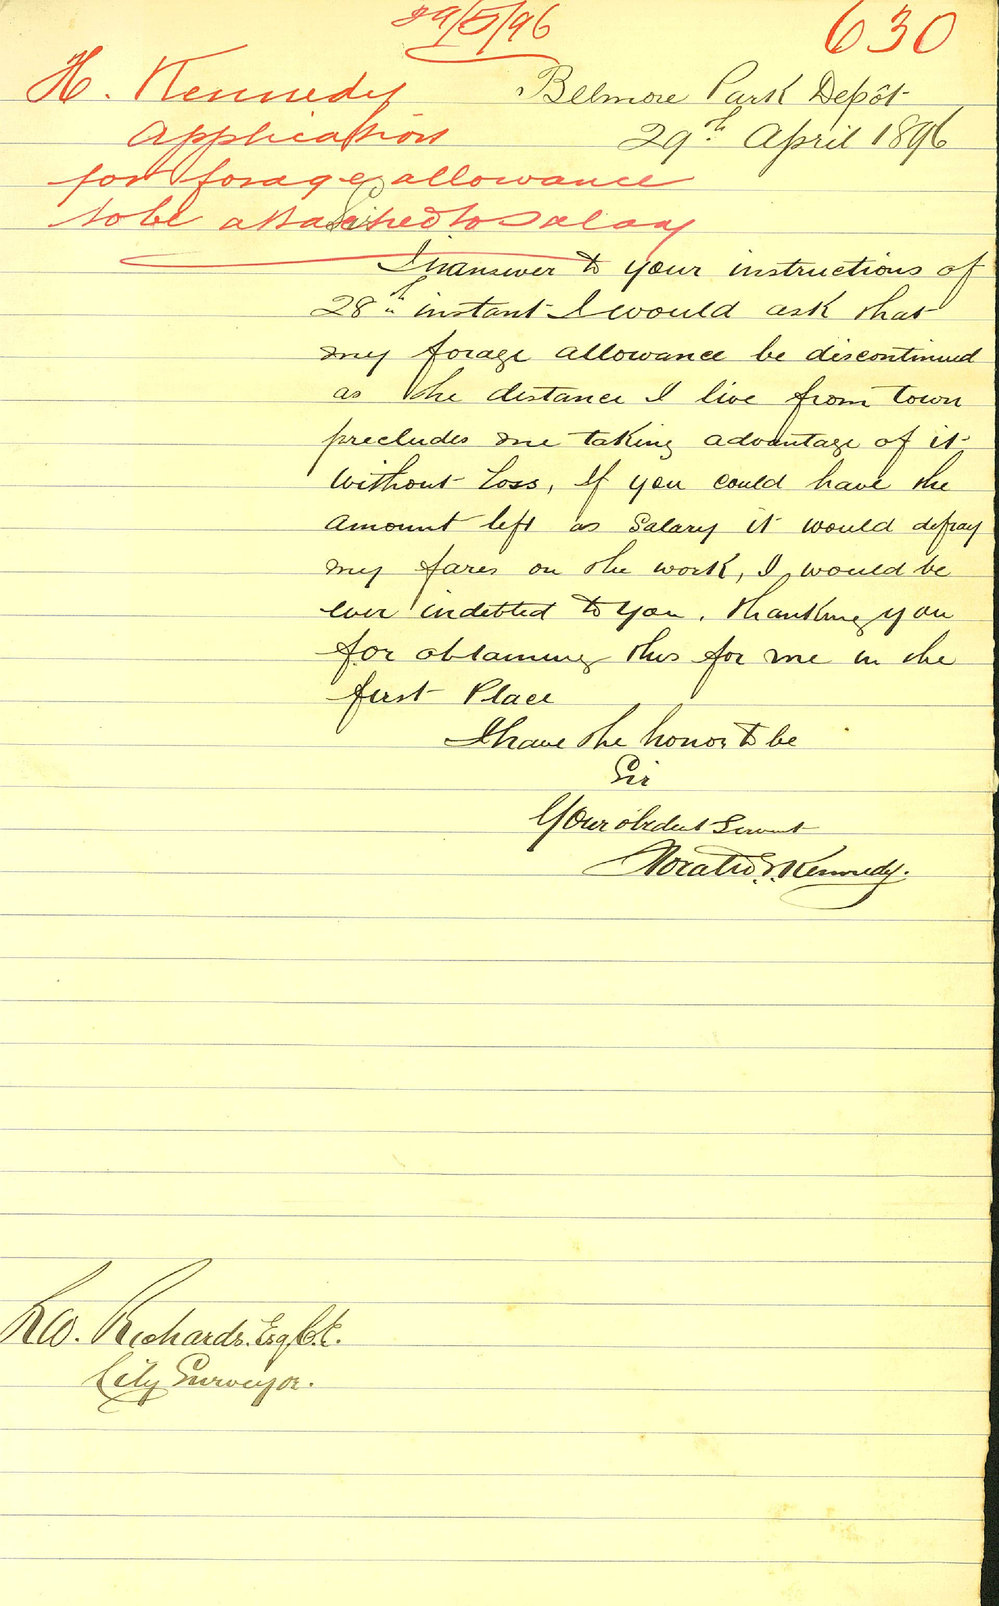 29/5/96
630
H. Kennedy
Application
for forage allowance
to be attached to Salary
Belmore Park Depôt
29th April 1896
Sir
In answer to your instructions of
28th instant I would ask that
my forage allowance be discontinued
as the distance I live from town
precludes me taking advantage of it
without Loss, If you could have the
amount left as Salary it would defray
my fares on the work, I would be
ever indebted to you. thanking you
for obtaining this for me in the
first Place
I have the honor to be
Sir
Your obedient Servant
Horatio S. Kennedy.
R W. Richards. Esq. C.E.
City Surveyor.